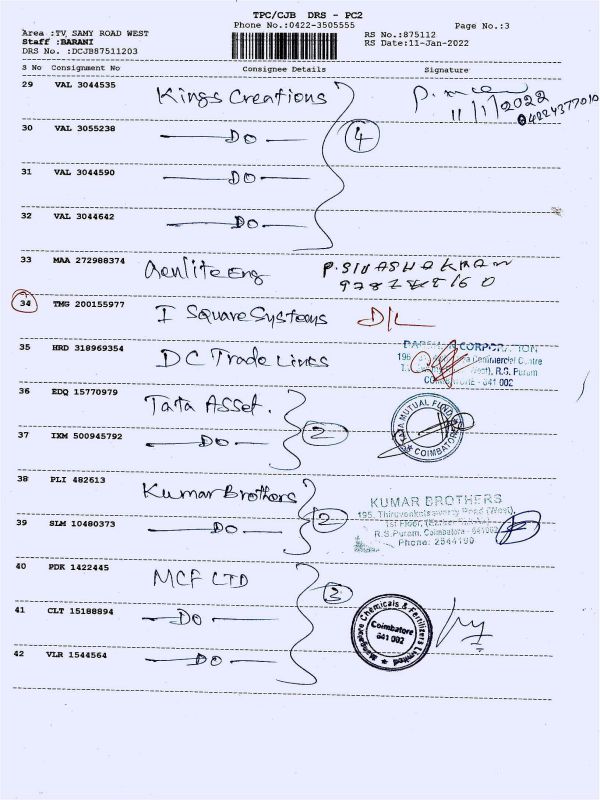 TPC/CJB DRS - PC2
Phone No.:0422-3505555 Page No.:3
Area :TV SAMY ROAD WEST
Staff :BARANI
DRS No. :DCJB87511203
RS No.:875112
RS Date:11-Jan-2022
S No Consignment No Consignee Details Signature
29 VAL 3044535 Kings Creations
11/1/2022
04224377010
30 VAL 3055238 DO 4
31 VAL 3044590 DO
32 VAL 3044642 DO
33 MAA 272988374
34 TMG 200155977 I Square Systems D/L
35 HRD 318969354 DC Trade Lines
CORPORATION
Commercial Centre
West), R.S. Puram
COIMBATORE - 641 002
36 EDQ 15770979 Tata Asset.
TATA MUTUAL FUND
COIMBATORE
37 IXM 500945792 DO 2
38 PLI 482613 Kumar Brothers
KUMAR BROTHERS
195, Thiruvenkataswamy Road (West),
1st Floor,
R.S.Puram, Coimbatore - 641002
Phone: 2544190
39 SLM 10480373 DO 2
40 PDK 1422445 MCF LTD 3
41 CLT 15188894 DO
Mangalore Chemicals & Fertilizers Limited
Coimbatore
641 002
42 VLR 1544564 DO